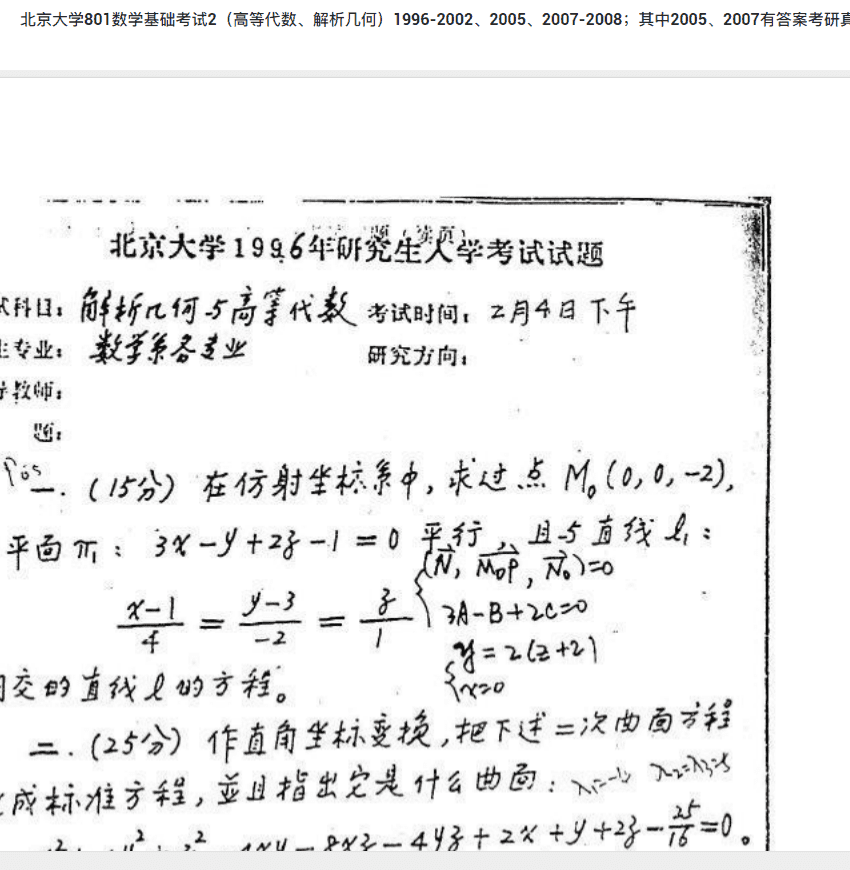 北京大学801数学基础考试2（高等代数、解析几何）1996-2002、2005、2007-2008；其中2005、2007有答案考研真
北京大学1996年研究生入学考试试题
科目： 解析几何与高等代数 考试时间： 2月4日下午
专业： 数学系各专业 研究方向：
教师：
题：
一. (15分) 在仿射坐标系中, 求过点 M₀(0, 0, -2),
平面 π₁: 3x - y + 2z - 1 = 0 平行, 且与直线 l₁:
(N, M₀P, N₀)=0
x-1/4 = y-3/-2 = z/1
3A-B+2C=0
y=2(z+2)
x=0
相交的直线 l 的方程。
二. (25分) 作直角坐标变换, 把下述二次曲面方程
成标准方程, 並且指出它是什么曲面:
4xy - 8xz - 4yz + 2x + y + 2z - 25/16 = 0。